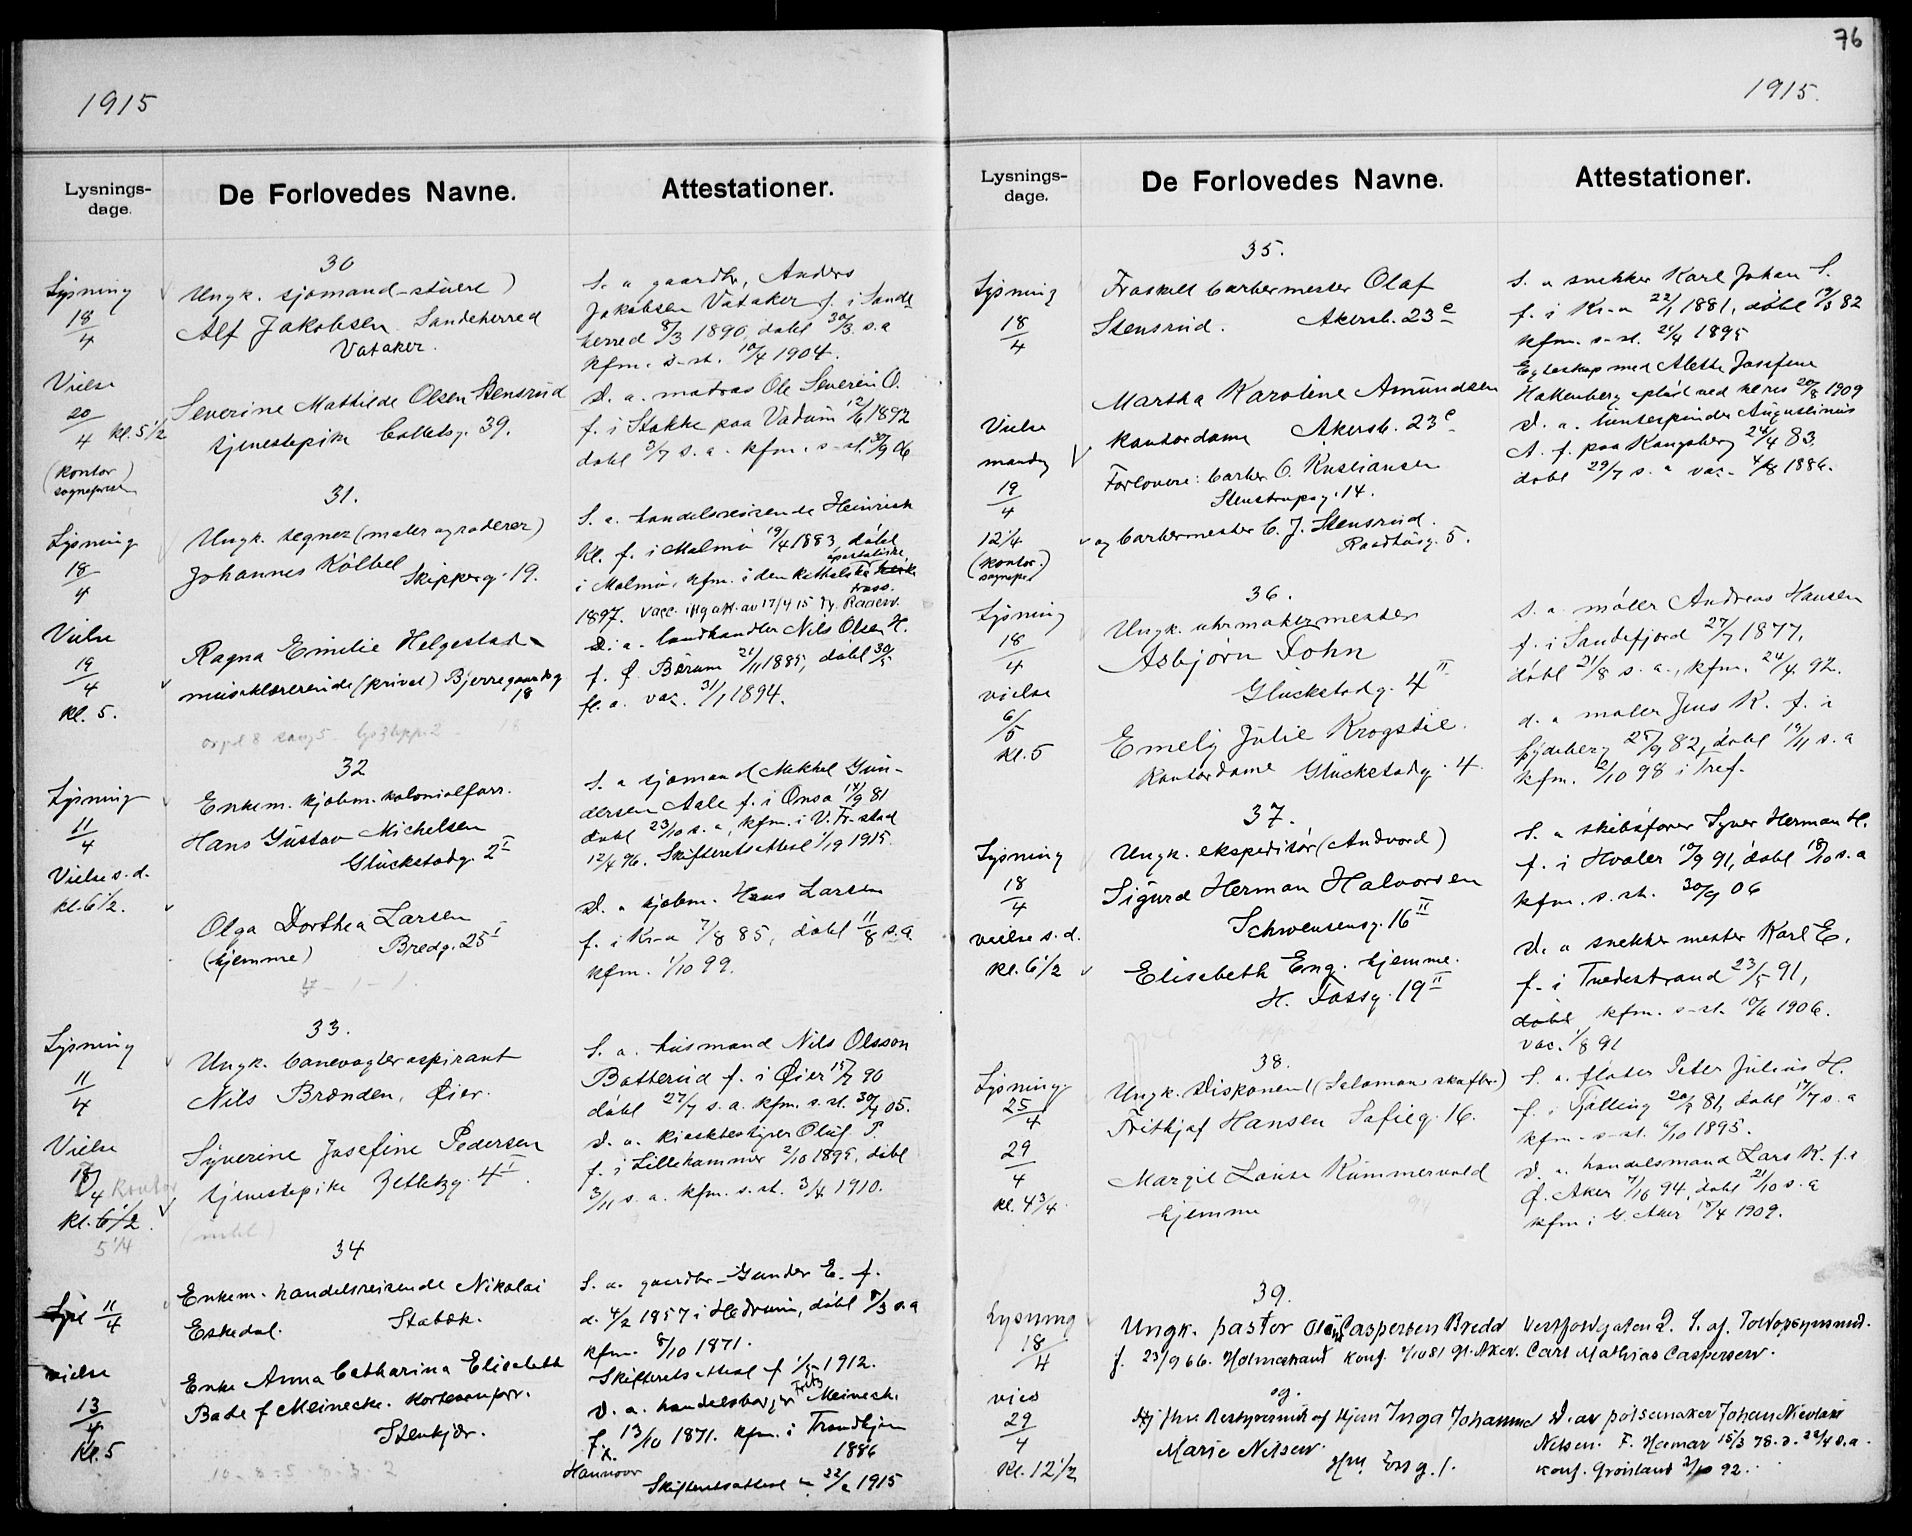 76
1915
Lysnings-
dage.
De Forlovedes Navne.
Attestationer.
30
Lysning
18/4
Ungk. sjømand-stuert)
Alf Jakobsen Sandeherred
Vataker.
S. a gaardbr. Anders
Jakobsen Vataker f. i Sande
herred 8/3 1890, døbt 30/3 s.a
kfm. s-st. 10/4 1904.
Vielse
20/4 kl. 5 1/2
(kontor)
Severine Mathilde Olsen Stensrud
tjenestepike Colletsg. 39.
D. a. matros Ole Severin O.
f. i Stokke paa Vadum 12/6 1892
døbt 3/7 s. a. kfm. s-st. 30/9 06
31.
Lysning
18/4
Ungk. tegner (maler og raderer)
Johannes Kölbel
Skipperg. 19.
S. a. handelsreisende Heinrich
Kl. f. i Malmø 19/4 1883, døbt
i Malmø, kfm. i den katholska apostoliske
1897. vacc. iflg att. av 17/4 15
Vielse
19/4
kl. 5.
Ragna Emilie Helgestad
musiklærerinde (privat) Bjerregaardsg
18
D. a. landhandler Nils Olsen H.
f. Ø. Bærum 21/11 1885, døbt 30/5
fl. a. vac. 31/1 1894.
32
Lysning
11/4
Enkem. kjøbm. kolonialforr.
Hans Gustav Michelsen
Glückstadg. 2 I
S. a sjømand Mikkel Gun-
dersen Aale f. i Onsø 14/9 81
døbt 23/10 s. a, kfm. i V. Fr-stad
12/4 96. Skifteretsattest 1/9 1915
Vielse s. d.
kl. 6 1/2.
Olga Dorthea Larsen
(hjemme) Bredg. 25 I
D. a kjøbm. Hans Larsen
f. i Kr-a 7/8 85, døbt 11/8 s. a
kfm. 1/10 99.
33.
Lysning
11/4
Ungk. banevogteraspirant
Nils Brænden, Øier.
S. a. husmand Nils Olsson
Batterud f. i Øier 15/7 90
døbt 27/7 s. a. kfm. s. st. 30/4 05.
Vielse
18/4 Kontor
kl. 6 1/2
5 1/4
Syverine Josefine Pedersen
tjenestepike Zetlitzg. 4 I
D. a. kioskbestyrer Oluf P.
f. i Lillehammer 2/10 1895, døbt
3/11 s. a. kfm. s. st. 3/4 1910.
34
11/4
Enkem. handelsreisende Nikolai
Eskedal. Stabæk.
S. a. gaardbr. Gunder E. f.
d. 4/2 1857 i Hedrum, døbt 8/3 s. a
kfm. 8/10 1871.
Skifteretsattest f 1/5 1912.
vielse
13/4
Kl. 5
Enke Anna Catharina Elisabeth
Bade f Meinecke. kortevareforr.
Stenkjær.
D. a. handelsborger Fritz Meineck.
f. 13/10 1871. kfm. i Trondhjem
i Hannover 1886
Skifteretsattest 22/2 1915
1915.
Lysnings-
dage.
De Forlovedes Navne.
Attestationer.
35.
Lysning
18/4
Fraskilt barbermester Olaf
Stensrud. Akersb. 23 c
S. a snekker Karl Johan S.
f. i Kr-a 22/1 1881, døbt 19/3 82
kfm. s-st. 21/4 1895
Egteskap med Alette Josefine
Hakkenberg opløst ved kl res 20/8 1909
Vielse
mandag
19/4
12 1/4
(kontor.)
Martha Karoline Amundsen
kontordame Akersb. 23 c
Forlovere: barber O. Kristiansen
Stenstrupsg. 14.
og barbermester C. J. Stensrud.
Raadhusg. 5.
D. a. luntespinder Augustinius
A. f. paa Kongsberg 24/4 83.
døbt 29/7 s. a vac. 4/8 1886.
36.
Lysning
18/4
Ungk. uhrmakermester
Asbjørn Fohn
Glückstadg. 4 II
S. a. møller Andreas Hansen
f. i Sandefjord 27/7 1877,
døbt 31/8 s. a., kfm. 24/4 92.
vielse
6/5
Kl. 5
Emely Julie Krogstie.
Kontordame Glückstadg. 4
d. a maler Jens K. f. i
Spydeberg 25/9 82, døbt 19/11 s. a
kfm. 2/10 98 i Tref.
37.
Lysning
18/4
Ungk. ekspeditør (Andvord)
Sigurd Herman Halvorsen
Schwensensg. 16 II
S. a skibsfører Syver Herman H.
f. i Hvaler 10/9 91, døbt 18/10 s. a
kfm. s. st. 30/9 06
vielse s. d.
kl. 6 1/2
Elisabeth Eng. hjemme.
H. Fossg. 19 II
D. a snekkermester Karl E.
f. i Tvedestrand 23/5 91,
døbt kfm. s-st. 10/6 1906.
vac. 1/8 91
38.
Lysning
25/4
Ungk. Diskonent (Salamanderskofbr.)
Frithjof Hansen Sofieg. 16.
S. a. fløter Peter Julius H.
f. i Tjølling 20/3 81, døbt 17/7 s. a
kfm. s-st. 6/10 1895.
29/4
kl. 4 3/4.
Margit Louise Kummervold
hjemme
D. a. handelsmand Lars K. f. i
Ø. Aker 7/10 94, døbt 21/10 s. a
kfm i G. Aker 18/4 1909.
39.
Lysning
18/4
Ungk. pastor Olaf Caspersen Bredd Vestfoldgaten 2. S. af. Toldopsynsmd.
f. 23/9 66. Holmestrand konf. 2/10 81 Gl. Aker. Carl Mathias Caspersen.
vies
29/4
Kl. 12 1/2
og
Inga Johanne
Marie Nilsen.
D. av pølsemaker Johan Nicolai
Nilsen. F. Hamar 15/3 78. d. 22/4 s. a.
konf. Grønland 2/10 92.